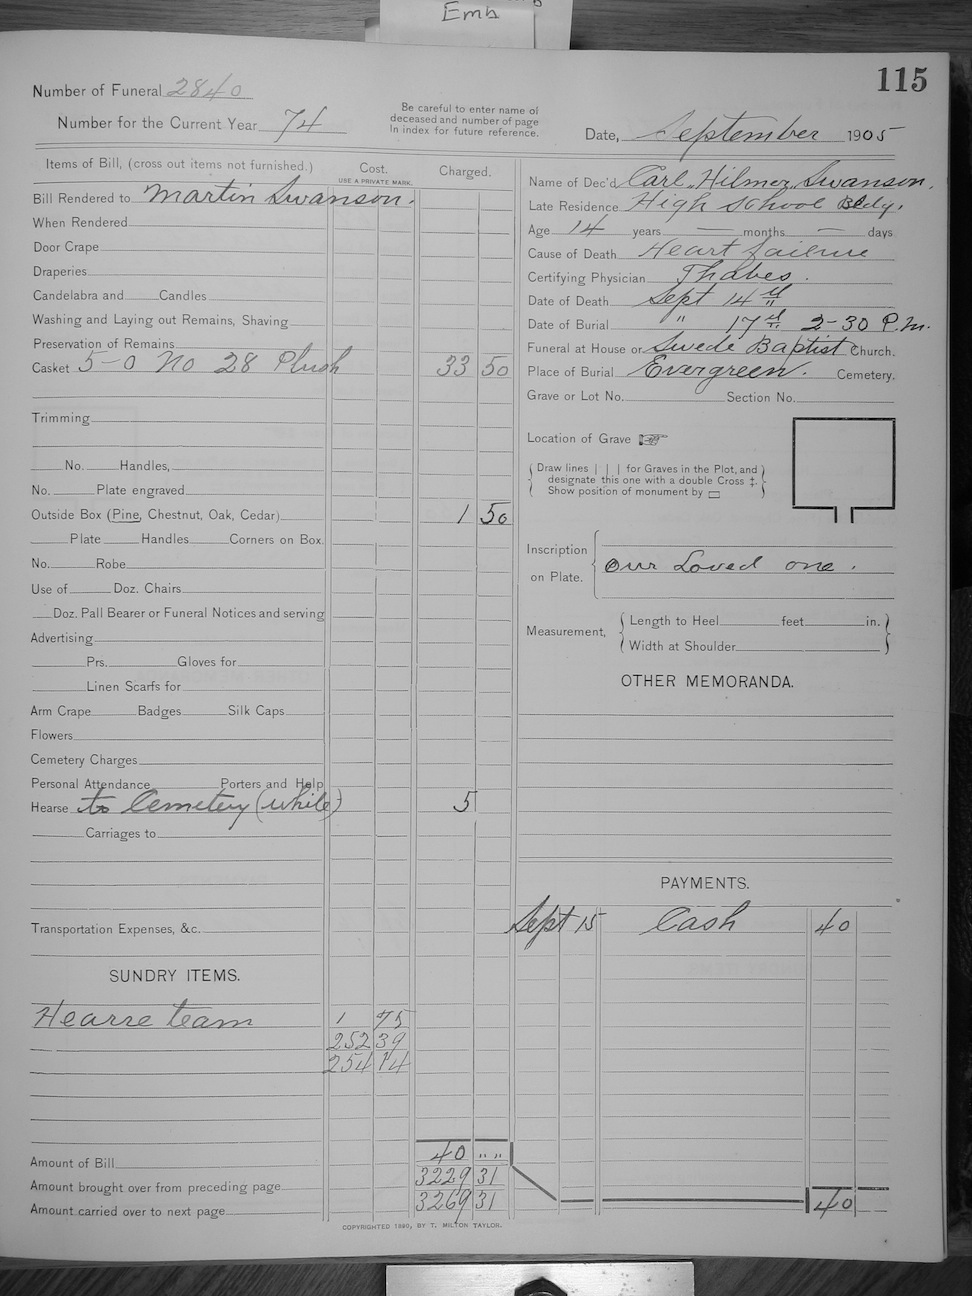 Emb
115
Number of Funeral 2840
Number for the Current Year 74
Be careful to enter name of
deceased and number of page
in index for future reference.
Date, September 1905
Items of Bill, (cross out items not furnished.)
Cost.
USE A PRIVATE MARK.
Charged.
Bill Rendered to Martin Swanson.
When Rendered
Door Crape
Draperies
Candelabra and Candles
Washing and Laying out Remains, Shaving
Preservation of Remains
Casket 5-0 No 28 Plush 33 50
Trimming
No. Handles,
No. Plate engraved
Outside Box (Pine, Chestnut, Oak, Cedar) 1 50
Plate Handles Corners on Box.
No. Robe
Use of Doz. Chairs
Doz. Pall Bearer or Funeral Notices and serving
Advertising
Prs. Gloves for
Linen Scarfs for
Arm Crape Badges Silk Caps
Flowers
Cemetery Charges
Personal Attendance Porters and Help
Hearse to Cemetery (while) 5
Carriages to
Transportation Expenses, &c.
SUNDRY ITEMS.
Hearse team 1 75
252 39
254 14
Amount of Bill 40 " "
Amount brought over from preceding page 3229 31
Amount carried over to next page 3269 31
Name of Dec'd Carl Hilmer Swanson.
Late Residence High School Bldg.
Age 14 years — months — days
Cause of Death Heart failure
Certifying Physician Thabes.
Date of Death Sept 14th
Date of Burial " 17th 2-30 P.m.
Funeral at House or Swede Baptist Church.
Place of Burial Evergreen. Cemetery.
Grave or Lot No. Section No.
Location of Grave
Draw lines | | | for Graves in the Plot, and
designate this one with a double Cross ‡.
Show position of monument by ▭
Inscription
on Plate.
Our Loved one.
Measurement,
Length to Heel feet in.
Width at Shoulder
OTHER MEMORANDA.
PAYMENTS.
Sept 15 Cash 40
40
COPYRIGHTED 1890, BY T. MILTON TAYLOR.